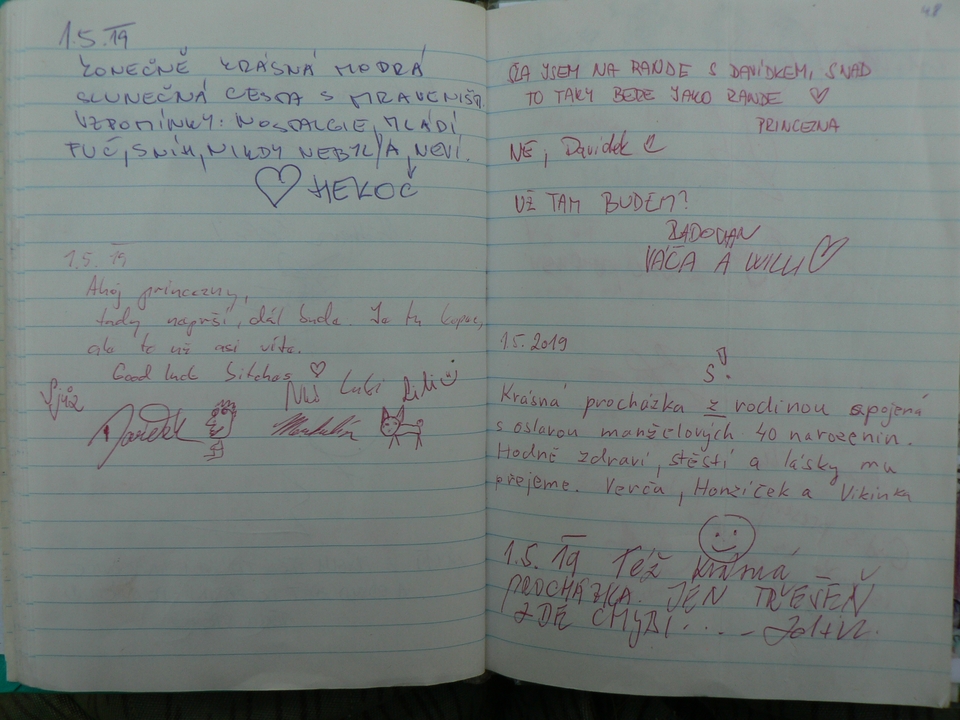 1.5.19
KONEČNĚ KRÁSNÁ MODRÁ
SLUNEČNÁ CESTA S MRAVENIŠT.
VZPOMÍNKY: NOSTALGIE, MLÁDÍ
FUČ, SNÍH, NIKDY NEBYL/A, NEVÍ.
HEKOČ
1.5.19
Ahoj princezny,
tady naprší, dál bude. Je tu kopec,
ale to už asi víte.
Good luck bitches
Nás Lili
48
JSEM NA RANDE S DAVÍDKEM, SNAD
TO TAKY BERE JAKO RANDE
PRINCEZNA
NE, Davídek
UŽ TAM BUDEM?
RADOVAN
VÁČA A
1.5.2019
S!
Krásná procházka z rodinou spojená
s oslavou manželových 40 narozenin.
Hodně zdraví, štěstí a lásky mu
přejeme. Verča, Honzíček a Vikinka
1.5.19 Též krásná
PROCHÁZKA JEN TŘEŠEŇ
ZDE CHYBÍ....